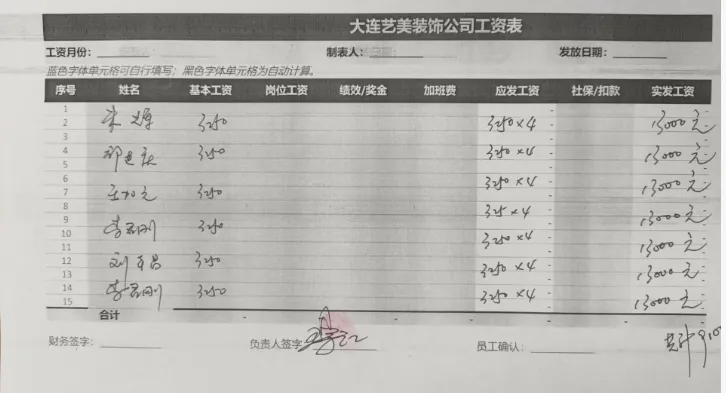 大连艺美装饰公司工资表
工资月份： 制表人： 发放日期：
蓝色字体单元格可自行填写；黑色字体单元格为自动计算。
序号 姓名 基本工资 岗位工资 绩效/奖金 加班费 应发工资 社保/扣款 实发工资
1
2 3250 3250×4 - 13000元
3
4 3250 3250×4 - 13000元
5
6 3250×4 - 13000元
7 3250
8 325×4 -
9 3250 13000元
10 3250×4 - 13000元
11
12 刘 3250 3250×4 - 13000元
13
14 李 刚 3250 3250×4 - 13000元
15
合计 - - - - - -
财务签字： 负责人签字 员工确认： 共计910